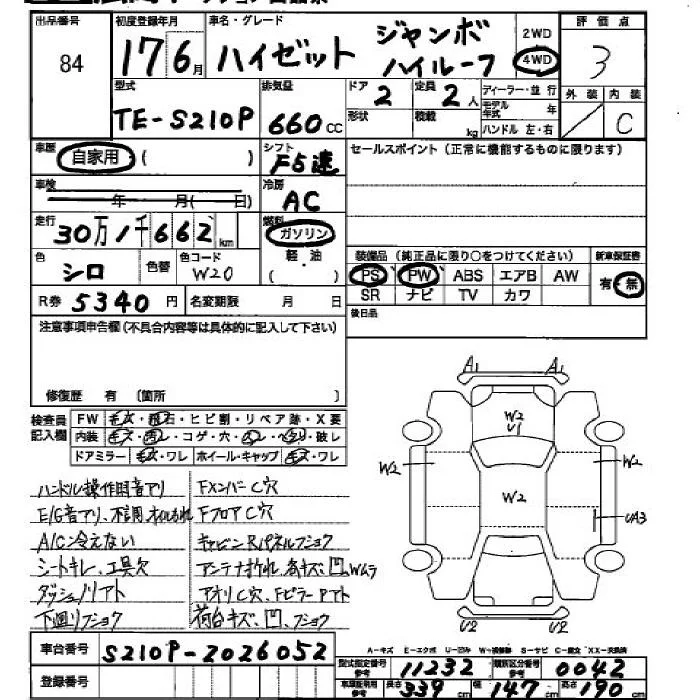 出品番号 84
初度登録年月 17 6月
車名・グレード ハイゼット ジャンボ ハイルーフ
2WD
4WD
評価点 3
型式 TE-S210P
排気量 660cc
ドア 2
定員 2人
形状
積載 kg
ディーラー・並行
モデル年式 年
ハンドル 左・右
外装 ／
内装 C
車歴 自家用 ( )
シフト F5速
セールスポイント(正常に機能するものに限ります)
車検 年 月( 日)
冷房 AC
走行 30万1千662km
燃料 ガソリン
軽・油
( )
色 シロ
色替
色コード W20
装備品(純正品に限り○をつけてください)
新車保証書
PS PW ABS エアB AW
有・無
SR ナビ TV カワ
R券 5340円
名変期限 月 日
後日品
注意事項申告欄(不具合内容等は具体的に記入して下さい)
修復歴 有 〔箇所 〕
検査員記入欄
FW 毛ズ・飛石・ヒビ割・リペア跡・X要
内装 ・コゲ・穴・ ・破レ
ドアミラー キズ・ワレ ホイール・キャップ キズ・ワレ
ハンドル操作時音アリ
E/G音アリ、不調オイルもれ
A/C冷えない
シートキレ、工具欠
ダッシュノリアト
下廻りフショク
FメンバーC穴
FフロアC穴
キャビンRパネルフショク
アンテナ折れ、各キズ、凹、Wムラ
アオリC穴、FピラーPアト
荷台キズ、凹、フショク
A1 A1
W2
U1
W2 W2
W2
UA3
U2 U2
A-キズ E-エクボ U-凹み W-補修跡 S-サビ C-腐食 XX-交換済
車台番号 S210P-2026052
登録番号
型式指定番号 参考 11232
類別区分番号 参考 0042
車検証記載 参考 長さ 339cm 幅 147cm 高さ 190cm